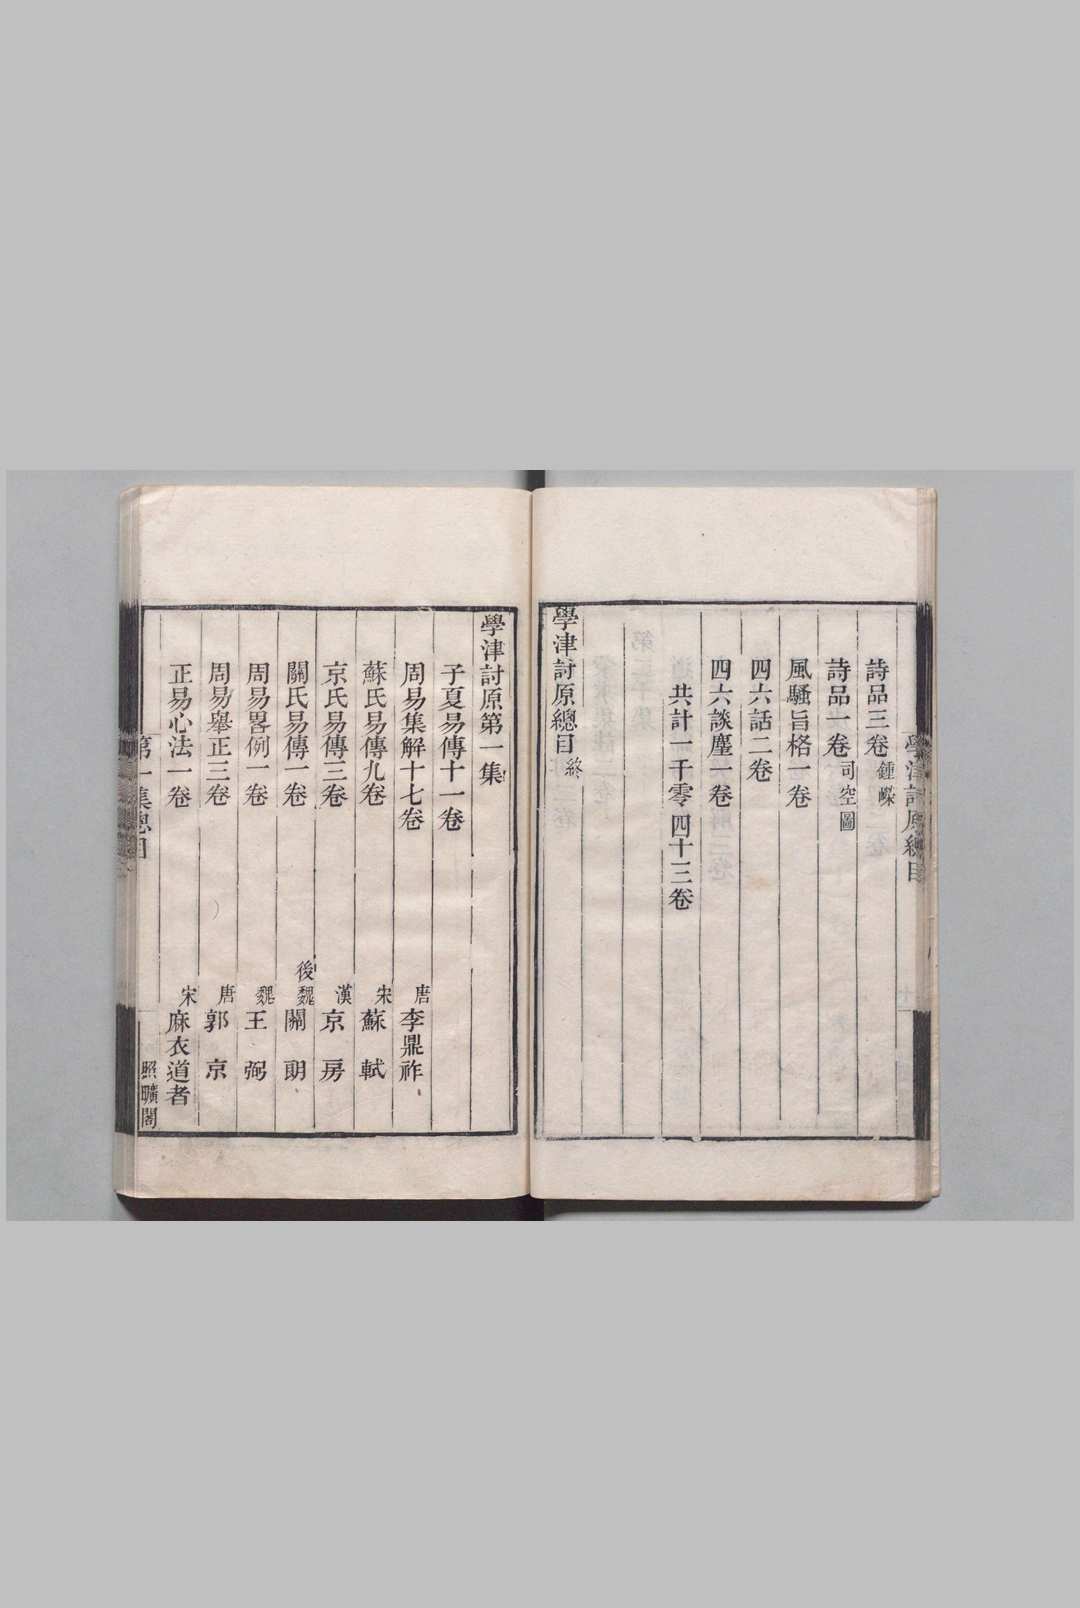 學津討原總目
詩品三卷鍾嶸
詩品一卷司空圖
風騷旨格一卷
四六話二卷
四六談麈一卷
共計一千零四十三卷
學津討原總目終
學津討原第一集
子夏易傳十一卷
周易集解十七卷 唐李鼎祚
蘇氏易傳九卷 宋蘇軾
京氏易傳三卷 漢京房
關氏易傳一卷 後魏關朗
周易畧例一卷 魏王弼
周易舉正三卷 唐郭京
正易心法一卷 宋麻衣道者
第一集總目 照曠閣